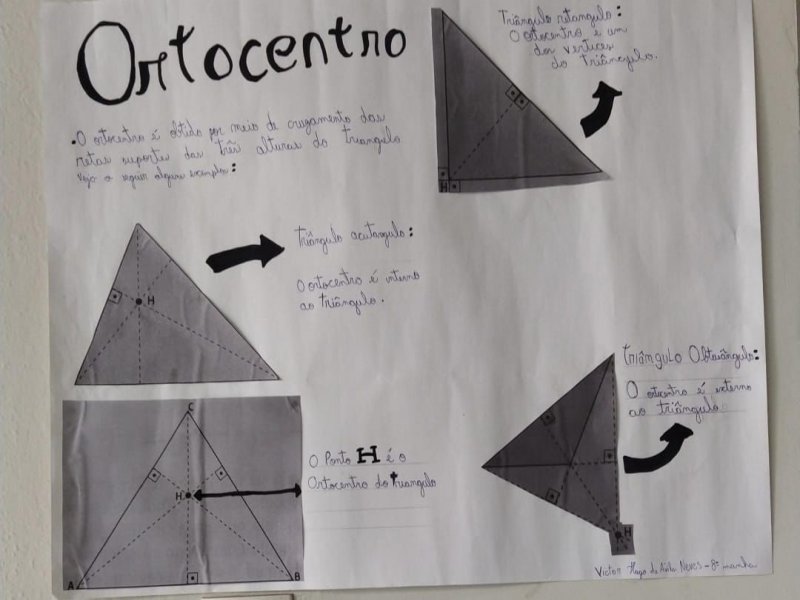 Ortocentro
• O ortocentro é obtido por meio de cruzamento das
retas suportes das três alturas do triangulo
veja a seguir alguns exemplos:
Triângulo retangulo:
O ortocentro é um
dos vertices
do triângulo.
H
Triângulo acutangulo:
O ortocentro é interno
ao triângulo.
H
C
H
A
B
O Ponto H é o
Ortocentro do triangulo
Triângulo Obtusângulo:
O ortocentro é externo
ao triângulo
H
Victor Hugo de Avila Neves - 8º manhã